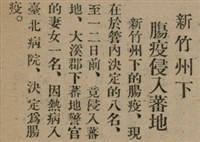 新竹州下
腸疫侵入蕃地
新竹州下的腸疫、現
在於管內決定的八名、
至一二日前、竟侵入蕃
地、大溪郡下蕃地警官
的妻女一名、因熱病入
臺北病院、決定爲腸
疫。